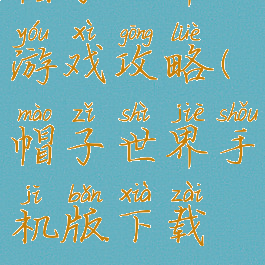 yóu xì gōng lüè
游戏攻略(
mào zǐ shì jiè shǒu
帽子世界手
jī bǎn xià zài
机版下载